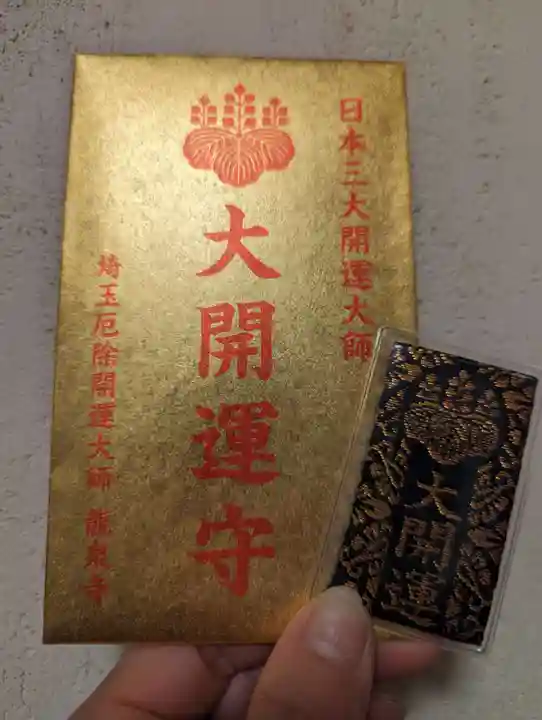 日本三大開運大師
大開運守
埼玉厄除開運大師 龍泉寺
大開運